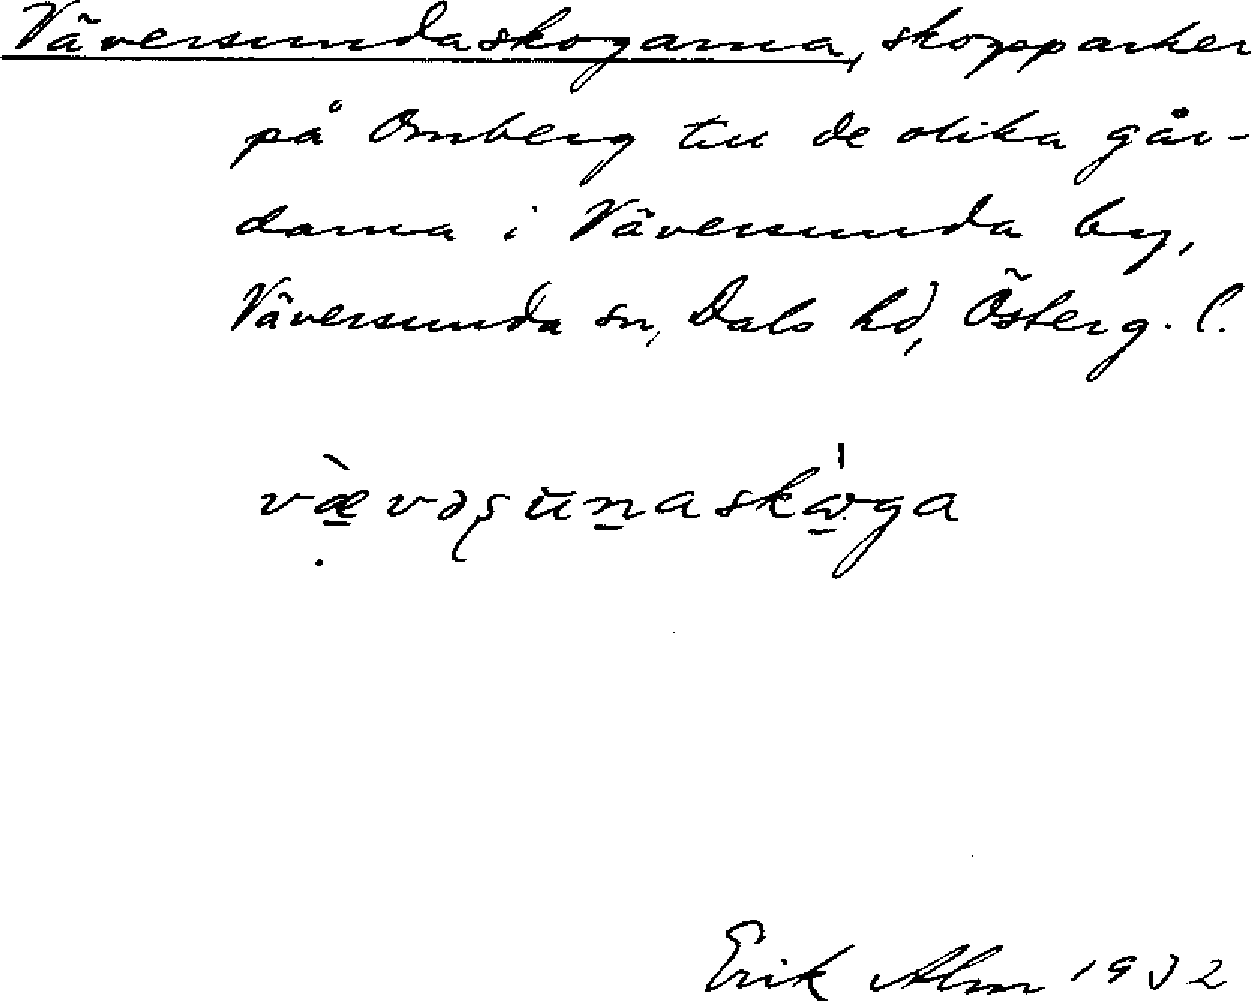 Väversundaskogarna, skogsparker
på Omberg till de olika går-
darna i Väversunda by,
Väversunda sn, Dals hd, Österg. l.
Erik Alm 1932